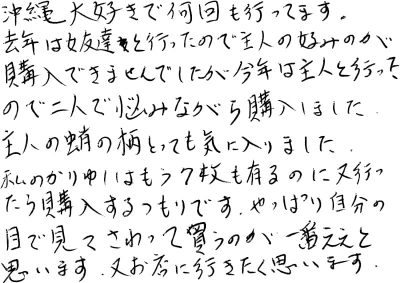 沖縄大好きで何回も行ってます。
去年は女友達と行ったので主人の好みのが
購入できませんでしたが今年は主人と行った
ので二人で悩みながら購入しました.
主人の蛸の柄とっても気に入りました.
私のかりゆしはもう7枚も有るのに又行っ
たら購入するつもりです.やっぱり自分の
目で見てさわって買うのが一番ええと
思います.又お店に行きたく思います.